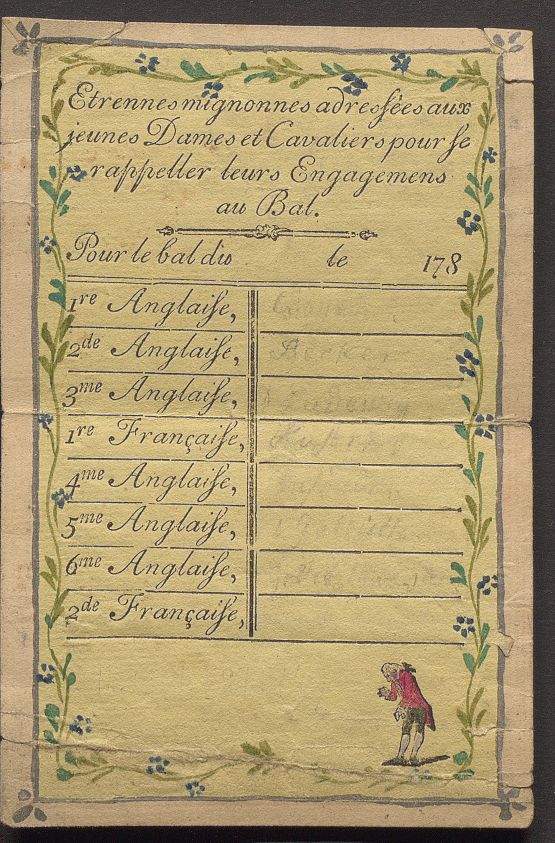 Etrennes mignonnes adreſſées aux
jeunes Dames et Cavaliers pour ſe
rappeller leurs Engagemens
au Bal.
Pour le bal du le 178
1re Anglaiſe,
2de Anglaiſe, Becker
3me Anglaiſe,
1re Françaiſe,
4me Anglaiſe,
5me Anglaiſe,
6me Anglaiſe,
2de Françaiſe,